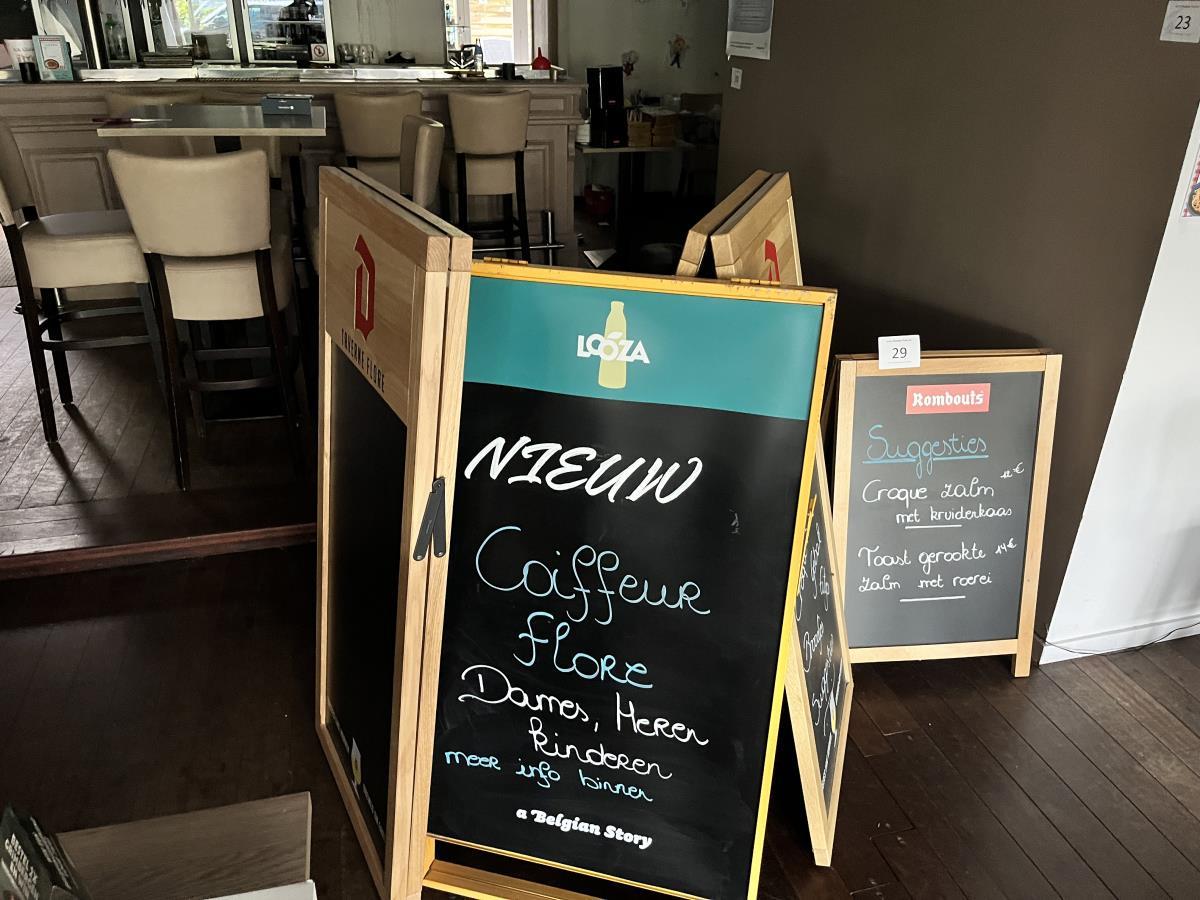 23
D
TAVERNE FLORE
LOÓZA
NIEUW
Coiffeur
Flore
Dames, Heren
kinderen
meer info binnen
a Belgian Story
29
Rombouts
Suggesties
Croque zalm 12€
met kruiderkaas
Toast gerookte 14€
zalm met roerei